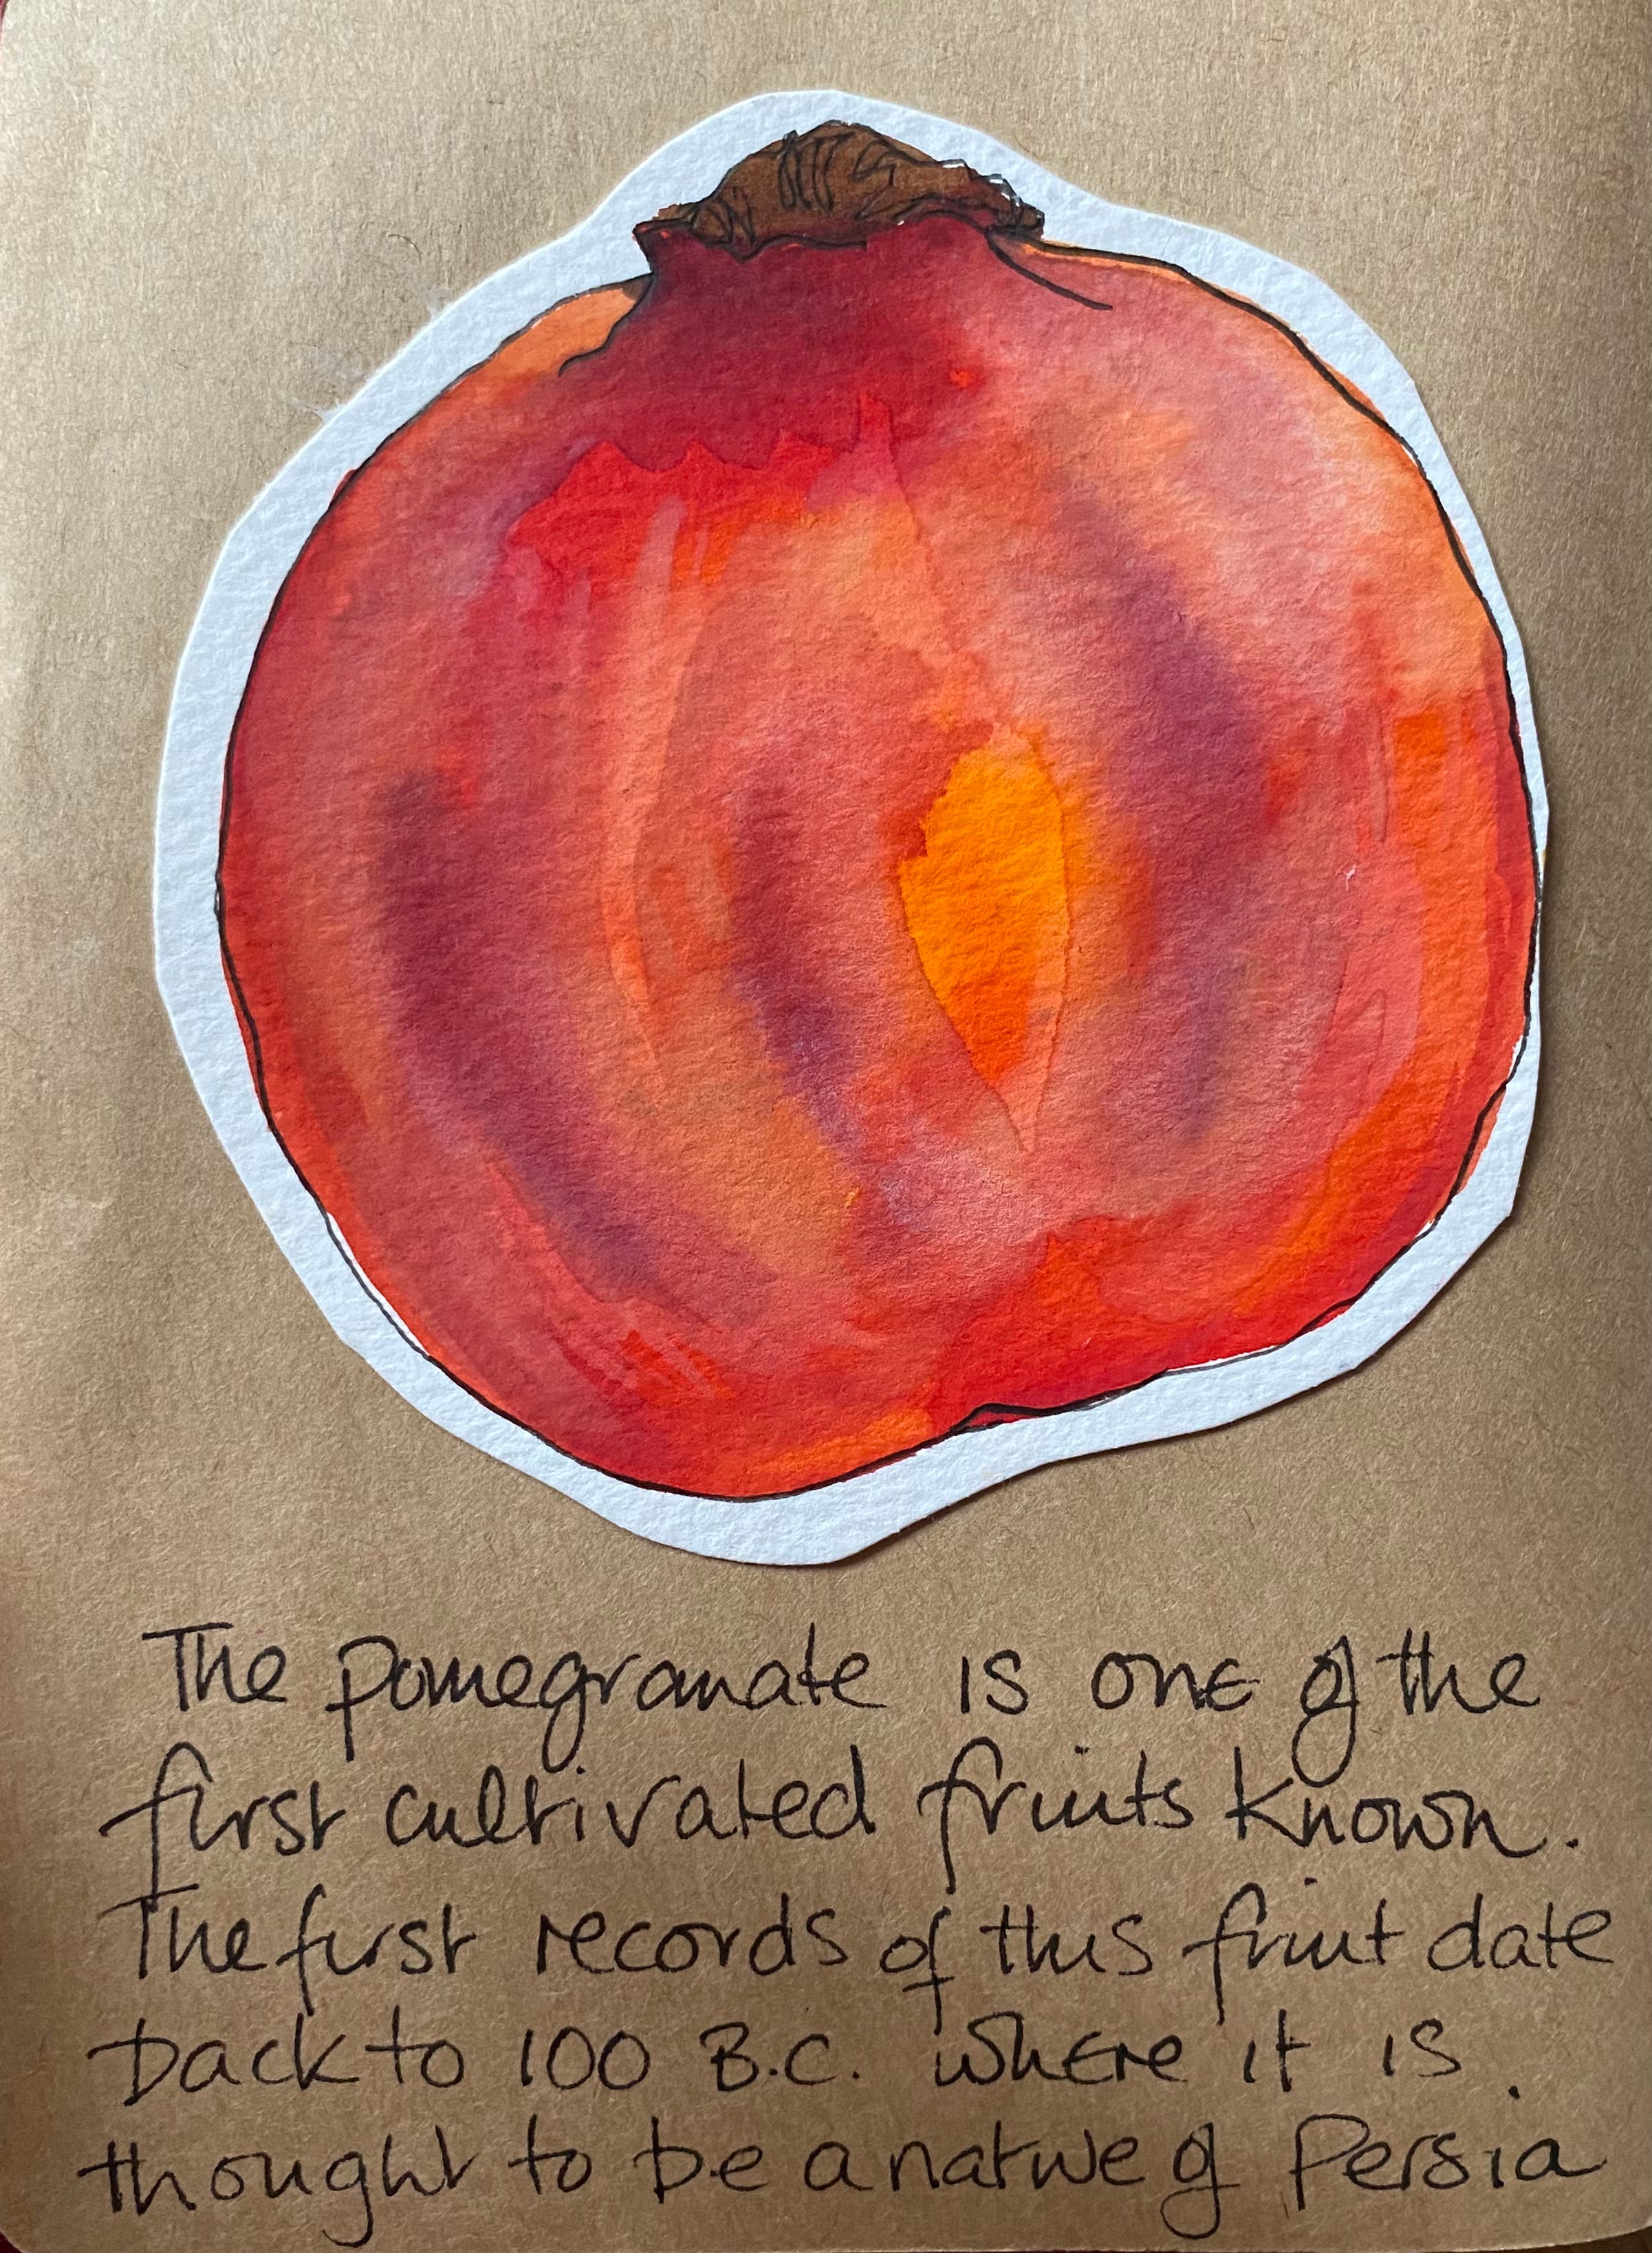 The pomegranate is one of the
first cultivated fruits known.
The first records of this fruit date
back to 100 B.C. where it is
thought to be a native of Persia